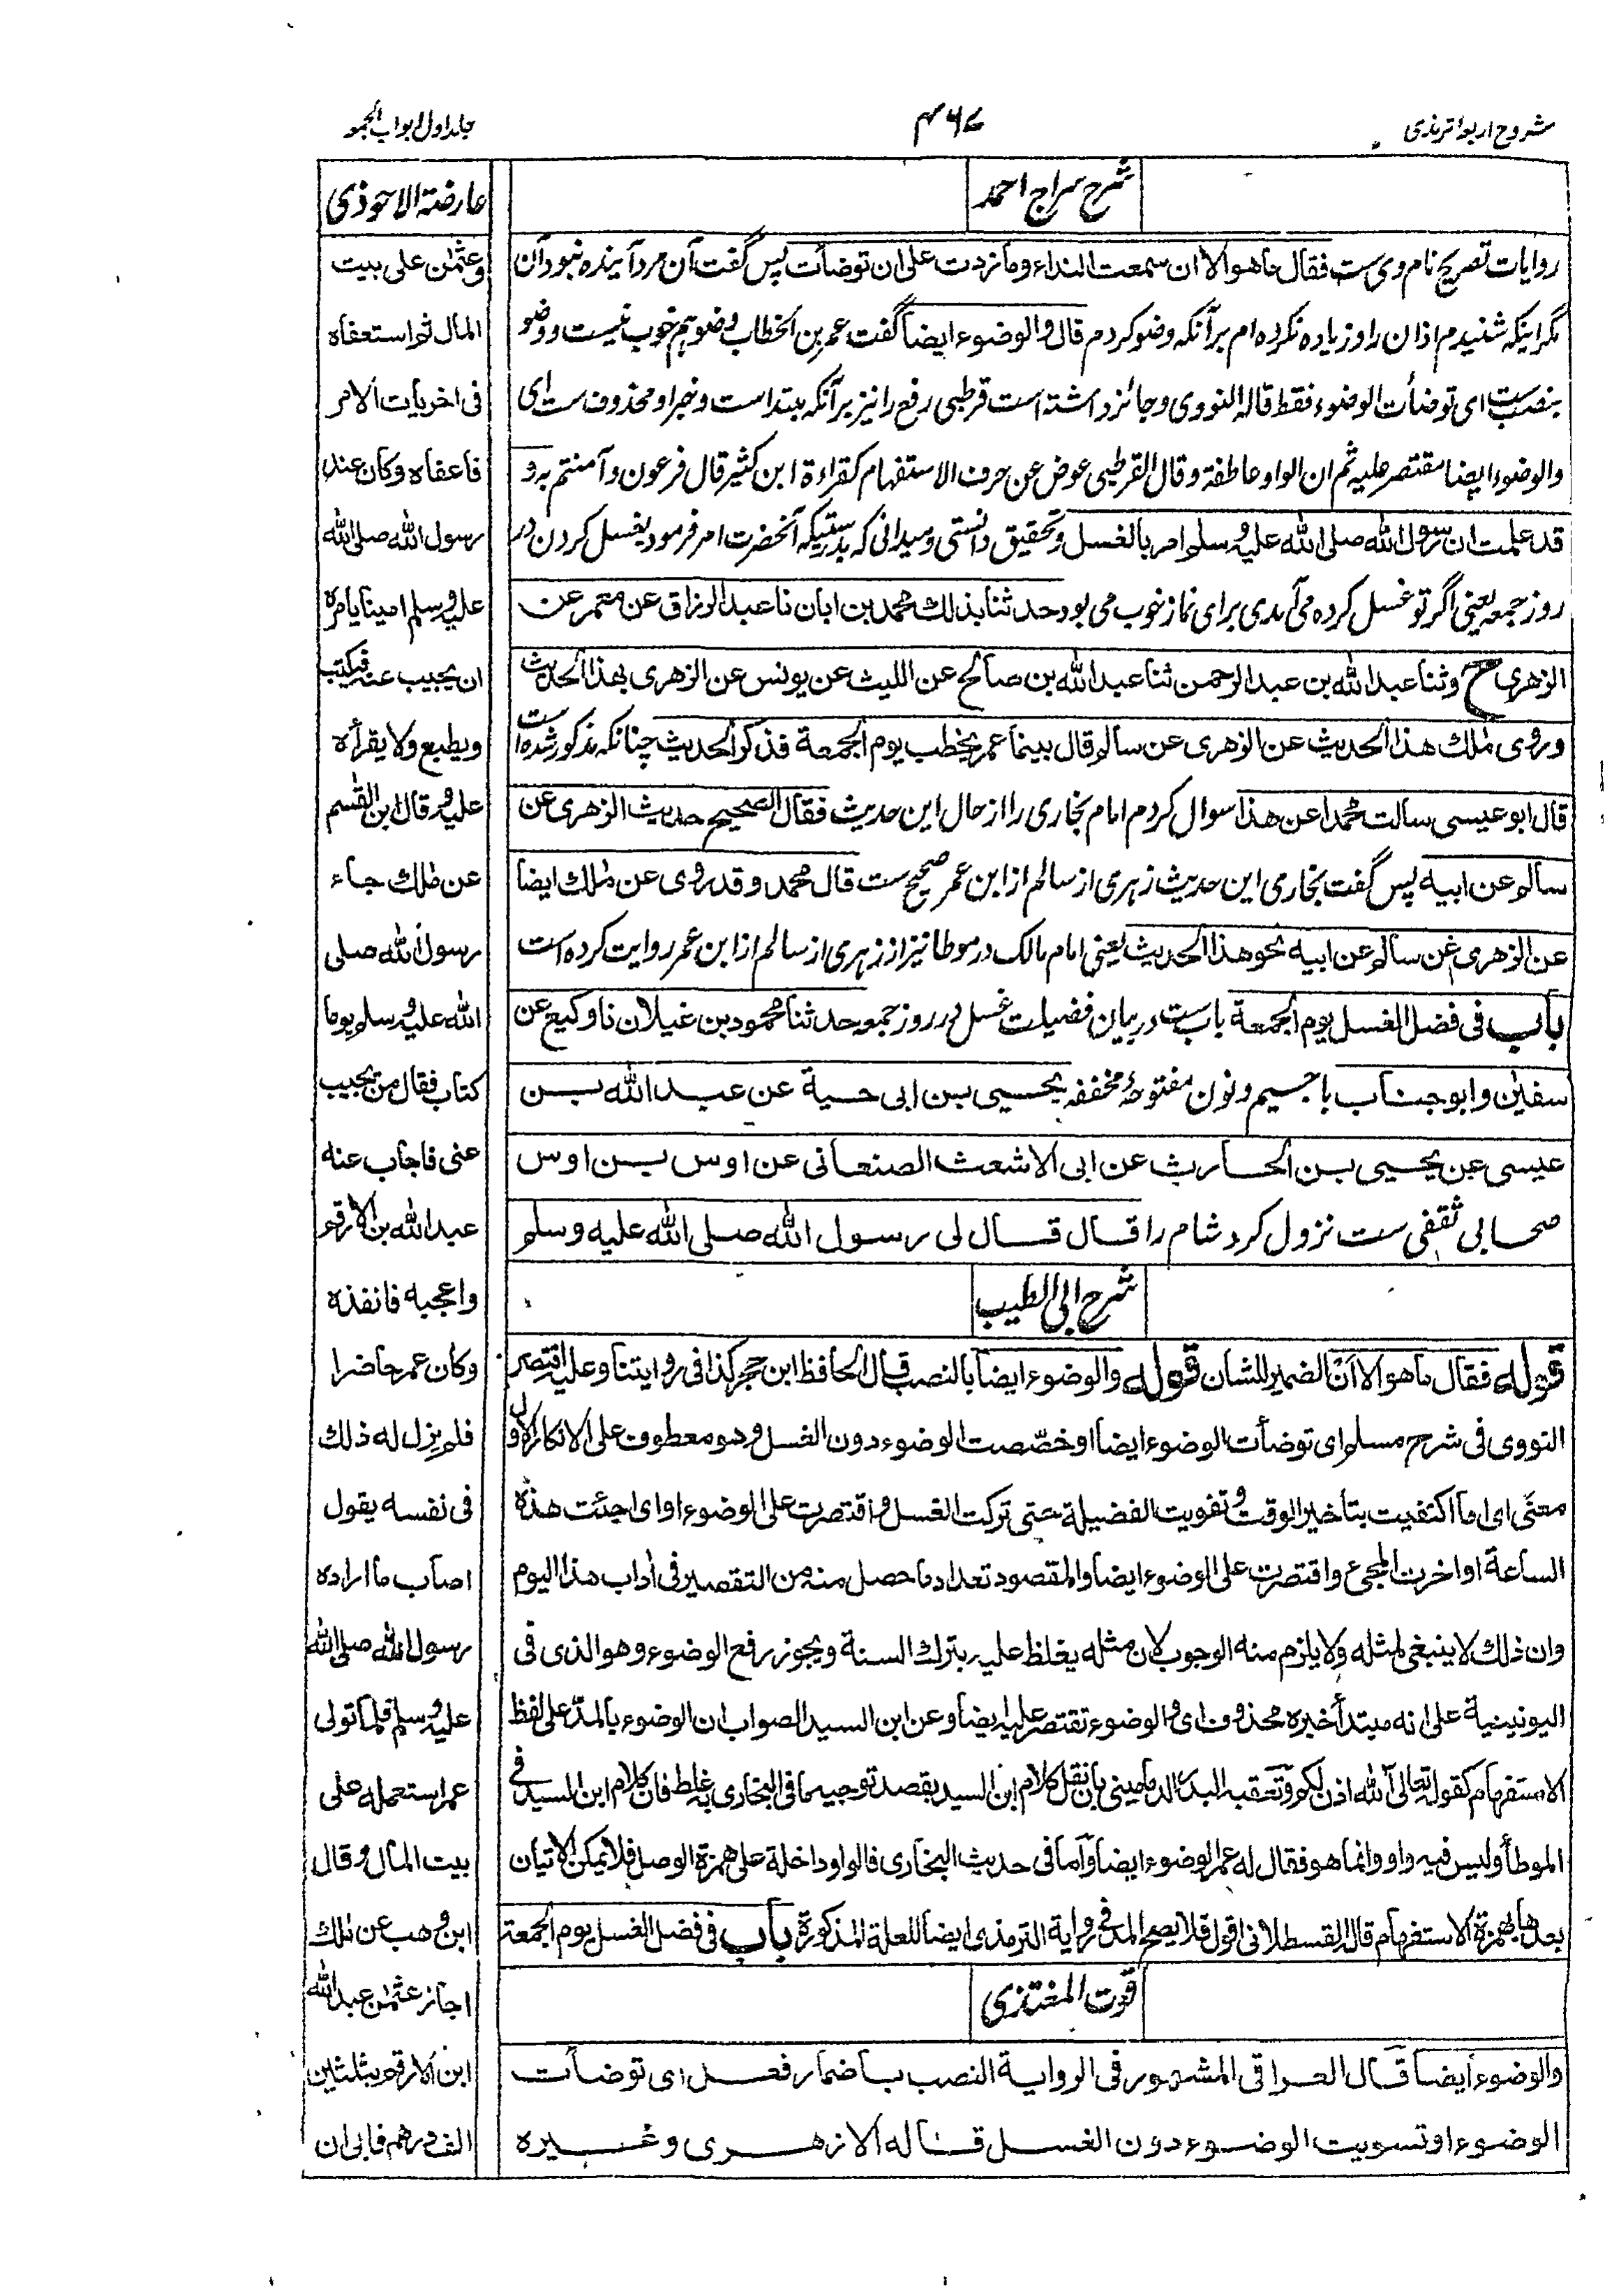 شروح اربعہ ترمذی
۴۶۷
جلد اول ابواب الجمعہ
شرح سراج احمد
روایات تصریح نام وی ست فقال ماهو الا ان سمعت النداء وما زدت علی ان توضأت پس گفت آن مرد آینده نبود آن
مگر اینکه شنیدم اذان را و زیاده نکرده ام بر آنکه وضو کردم قال والوضوء ایضا گفت عمر بن الخطاب وضو هم خوب نیست ووضو
بنصب ست ای توضأت الوضوء فقط قاله النووی وجائز داشته است قرطبی رفع را نیز بر آنکه مبتدا ست وخبر او محذوف ست ای
والوضوء ایضا مقتصر علیه ثم ان الواو عاطفة وقال القرطبی عوض عن حرف الاستفهام کقراءة ابن کثیر قال فرعون وآمنتم به و
قد علمت ان رسول الله صلی الله علیه وسلم امر بالغسل وتحقیق دانستی ومیدانی که بدرستیکه آنحضرت امر فرمود بغسل کردن در
روز جمعه یعنی اگر تو غسل کرده می آمدی برای نماز خوب می بود حدثنا بذلك محمد بن ابان نا عبد الرزاق عن معمر عن
الزهری ح وثنا عبد الله بن عبد الرحمن ثنا عبد الله بن صالح عن اللیث عن یونس عن الزهری بهذا الحدیث
وروی مٰلك هذا الحدیث عن الزهری عن سالم قال بینما عمر یخطب یوم الجمعة فذکر الحدیث چنانکه مذکور شده است
قال ابو عیسی سالت محمدا عن هذا سوال کردم امام بخاری را از حال این حدیث فقال الصحیح حدیث الزهری عن
سالم عن ابیه پس گفت بخاری این حدیث زهری از سالم از ابن عمر صحیح ست قال محمد وقد روی عن مٰلك ایضا
عن الزهری عن سالم عن ابیه نحو هذا الحدیث یعنی امام مالک در موطا نیز از زهری از سالم از ابن عمر روایت کرده است
باب فی فضل الغسل یوم الجمعة باب ست در بیان فضیلت غسل در روز جمعه حدثنا محمود بن غیلان نا وکیع عن
سفیٰن وابو جناب با جیم ونون مفتوحهٔ مخففه یحیی بن ابی حیة عن عبد الله بن
عیسی عن یحیی بن الحارث عن ابی الاشعث الصنعانی عن اوس بن اوس
صحابی ثقفی ست نزول کرد شام را قال قال لی رسول الله صلی الله علیه وسلم
شرح ابی الطیب
قوله فقال ماهو الا ان الضمیر للشان قوله والوضوء ایضا بالنصب قال الحافظ ابن حجر کذا فی روایتنا وعلیه اقتصر
النووی فی شرح مسلم ای توضأت الوضوء ایضا او خصّصت الوضوء دون الغسل وهو معطوف علی الانکار الاول
معنی ای اما اکتفیت بتأخیر الوقت وتفویت الفضیلة حتی ترکت الغسل واقتصرت علی الوضوء او ای اجئت هذه
الساعة او اخرت المجیء واقتصرت علی الوضوء ایضا والمقصود تعداد ما حصل منه من التقصیر فی أداب هذا الیوم
وان ذلك لا ینبغی لمثله ولا یلزم منه الوجوب لان مثله یغلظ علیه بترك السنة ویجوز رفع الوضوء وهو الذی فی
الیونینیة علی انه مبتدأ خبره محذوف ای والوضوء تقتصر علیه ایضا وعن ابن السید الصواب ان الوضوء بالمد علی لفظ
الاستفهام کقوله تعالی آلله اذن لکم وتعقبه البدر الدمامینی بان نقل کلام ابن السید بقصد توجیه مافی البخاری به غلط فان کلام ابن السید فی
الموطأ ولیس فیه واو وانما هو فقال له عمر الوضوء ایضا وأما فی حدیث البخاری فالواو داخلة علی همزة الوصل فلا یمکن الاتیان
بعدها بهمزة الاستفهام قاله القسطلانی اقول فلا یصح المد فی روایة الترمذی ایضا للعلة المذکورة باب فی فضل الغسل یوم الجمعة
قوت المغتذی
والوضوء ایضا قال العراقی المشهور فی الروایة النصب باضمار فعل ای توضأت
الوضوء او تسویت الوضوء دون الغسل قاله الازهری وغیره
عارضة الاحوذی
وعثمٰن علی بیت
المال ثم استعفاه
فی اخریات الامر
فاعفاه وکان عند
رسول الله صلی الله
علیه وسلم امینا یامره
ان یجیب عنه فیکتب
ویطبع ولا یقرأه
علیه وقال ابن القٰسم
عن مٰلك جاء
رسول الله صلی
الله علیه وسلم یوما
کتاب فقال من یجیب
عنی فاجاب عنه
عبد الله بن الارقم
واعجبه فانفذه
وکان عمر حاضرا
فلم یزل له ذلك
فی نفسه یقول
اصاب ما اراده
رسول الله صلی الله
علیه وسلم فلما تولی
عمر استعمله علی
بیت المال وقال
ابن وهب عن مٰلك
اجاز عثمٰن عبد الله
ابن الارقم بثلثین
الف درهم فابی ان